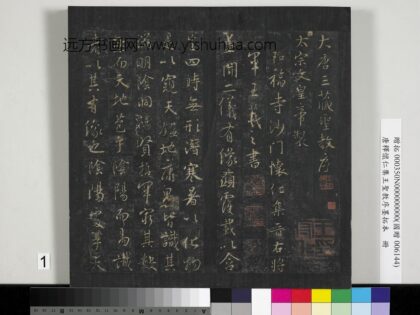 远方书画网 www.yfshuhua.com
大唐三藏聖教序
太宗文皇帝製
弘福寺沙門懷仁集晉右將
軍王羲之書
蓋聞二儀有像顯覆載以含
生四時無形潛寒暑以化物
是以窺天鑑地庸愚皆識其
端明陰洞陽賢哲罕窮其數
然而天地苞乎陰陽而易識
者以其有像也陰陽處乎天
贈拓 000350N000000000(國贈 006144)
唐釋懷仁集王聖教序墨拓本 冊
1